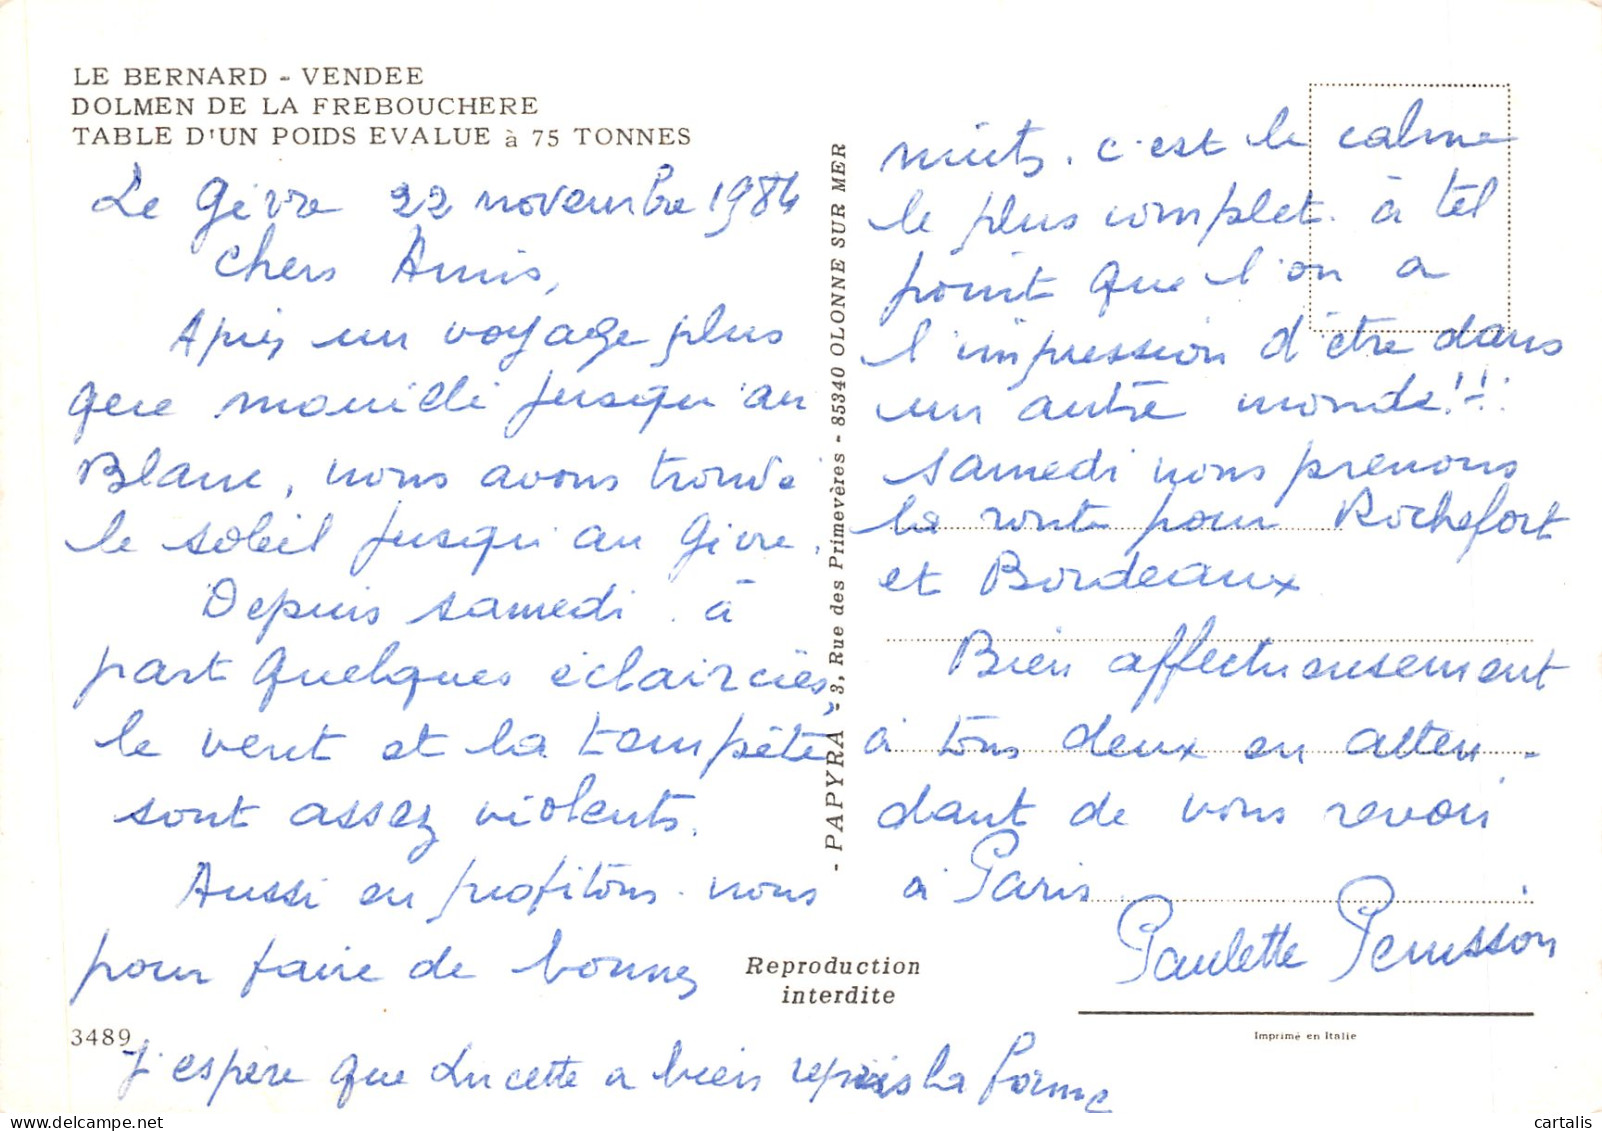 LE BERNARD - VENDEE
DOLMEN DE LA FREBOUCHERE
TABLE D'UN POIDS EVALUE à 75 TONNES
Le Givre 22 novembre 1984
Chers Amis,
Après un voyage plus
que mouillé jusqu'au
Blanc, nous avons trouvé
le soleil jusqu'au Givre.
Depuis samedi. à
part quelques éclaircies,
le vent et la tempête
sont assez violents.
Aussi en profitons-nous
pour faire de bonnes
3489
J'espère que Lucette a bien repris la forme
- PAPYRA - 3, Rue des Primevères - 85340 OLONNE SUR MER
Reproduction
interdite
nuits. c'est le calme
le plus complet. à tel
point que l'on a
l'impression d'être dans
un autre monde!!!
samedi nous prenons
la route pour Rochefort
et Bordeaux
Bien affectueusement
à tous deux en atten-
dant de vous revoir
à Paris
Paulette
Imprimé en Italie
cartalis